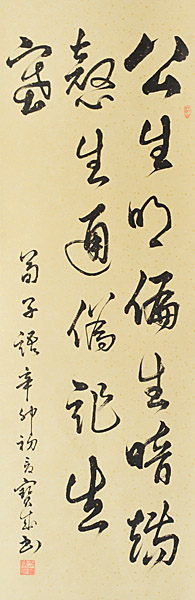 公生明偏生暗端
愨生通偽詐生
塞
荀子語辛卯初夏寶成書